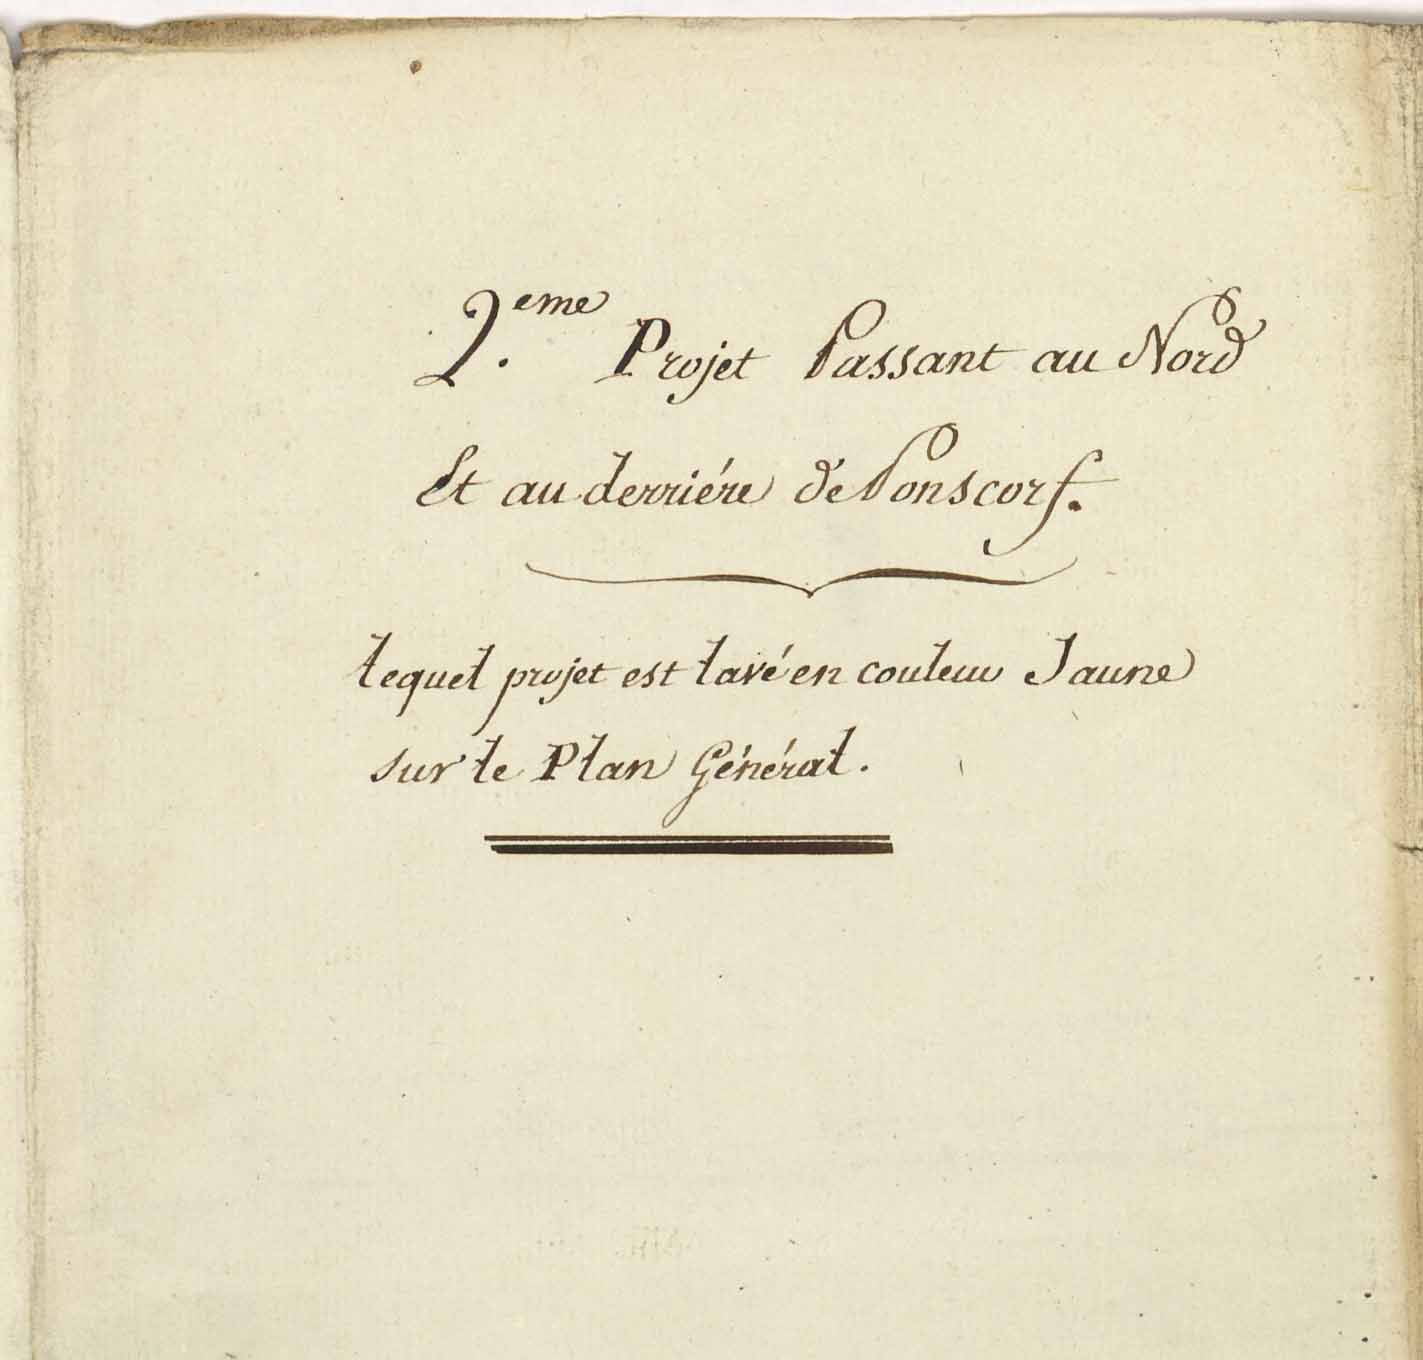 2.eme Projet Passant au Nord
Et au derriére de Ponscorf.
lequel projet est lavé en couleur Jaune
sur le Plan Général.